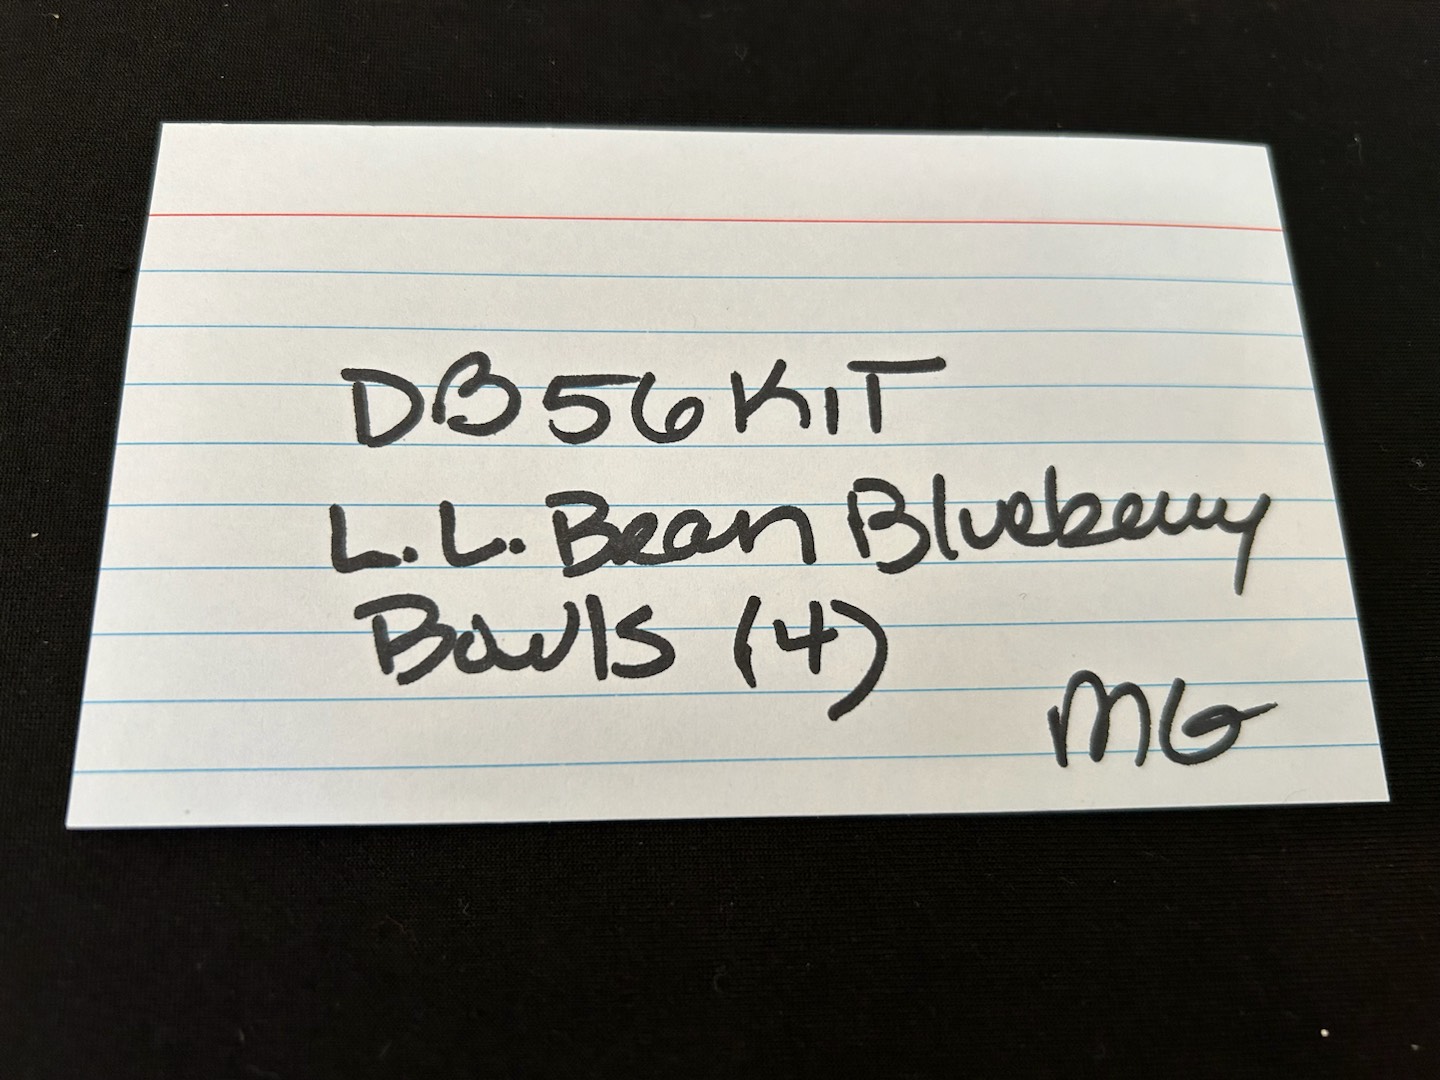 DB56KIT
L.L. Bean Blueberry
Bowls (4)
MG